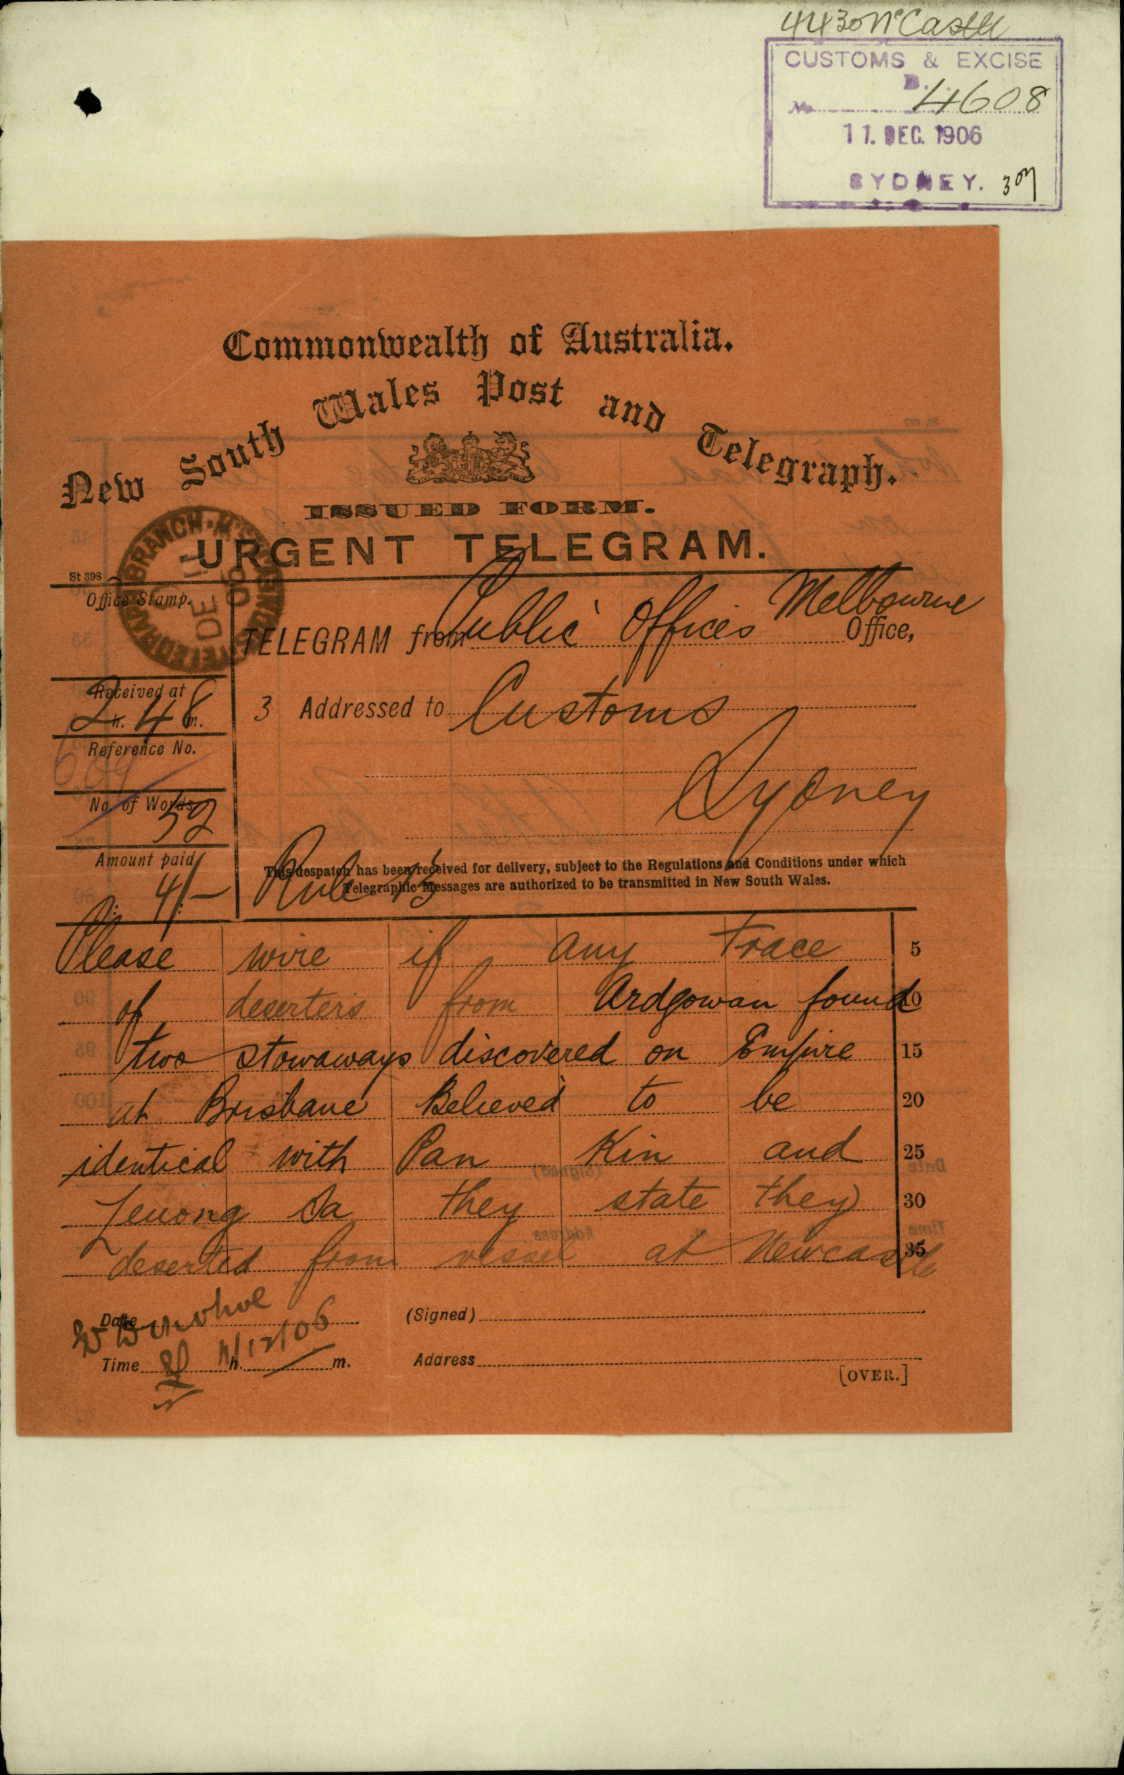 443 N'Castle
CUSTOMS & EXCISE
B.
No 4608
11. DEC. 1906
SYDNEY.
Commonwealth of Australia.
New South Wales Post and Telegraph.
ISSUED FORM.
URGENT TELEGRAM.
St 398
Office Stamp.
TELEGRAPH BRANCH
11 DE 06
TELEGRAM from Public Offices Melbourne Office,
Received at
2 h. 48 m.
3 Addressed to Customs
Reference No.
Sydney
No. of Words
52
Amount paid
4/-
Rule 15
This despatch has been received for delivery, subject to the Regulations and Conditions under which
Telegraphic Messages are authorized to be transmitted in New South Wales.
Please wire if any trace 5
of deserters from Ardgowan found 10
two stowaways discovered on Empire 15
at Brisbane Believed to be 20
identical with Pan Kin and 25
they state they 30
deserted from vessel at Newcastle 35
Date
(Signed)
11/12/06
Time h. m.
Address
[OVER.]